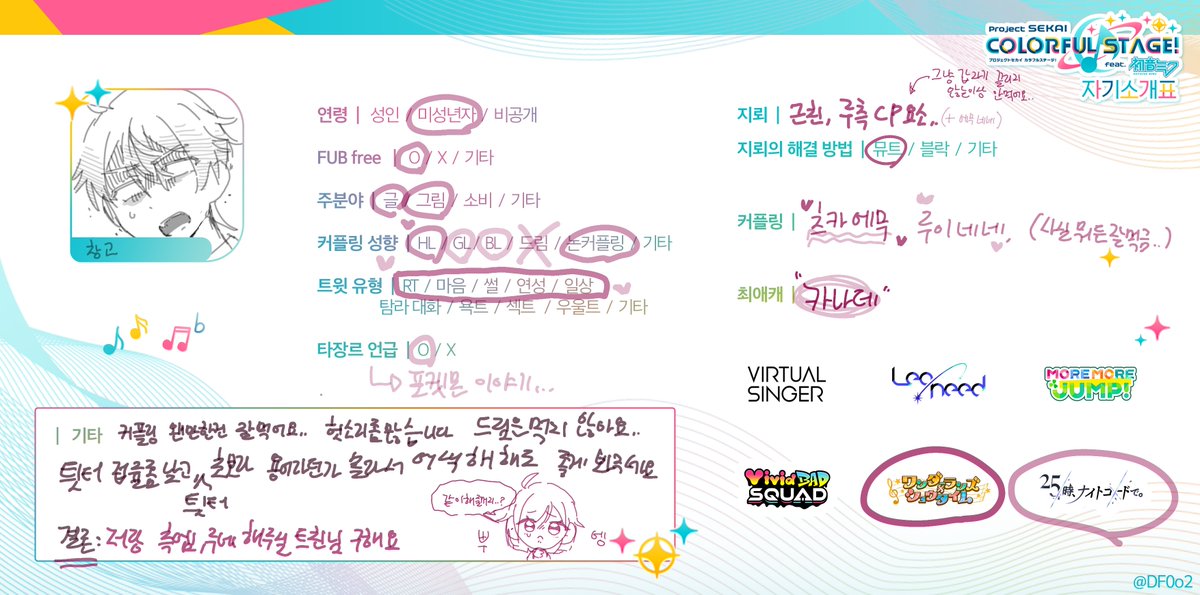 Project SEKAI
COLORFUL STAGE!
プロジェクトセカイ カラフルステージ!
feat. 初音ミク
자기소개표
창고
연령 | 성인 / 미성년자 / 비공개
FUB free | O / X / 기타
주분야 | 글 / 그림 / 소비 / 기타
커플링 성향 | HL / GL / BL / 드림 / 논커플링 / 기타
OOX
트윗 유형 | RT / 마음 / 썰 / 연성 / 일상
탐라 대화 / 욕트 / 섹트 / 우울트 / 기타
타장르 언급 | O / X
포켓몬 이야기...
그냥 갑자기 끌리지
않는이상 안먹어요..
지뢰 | 근친, 루측 CP요소..
지뢰의 해결 방법 | 뮤트 / 블락 / 기타
커플링 | 츠카에무 루이네네, (사실 뭐든잘먹음..)
최애캐 | "카나데"
VIRTUAL SINGER
Leo/need
MORE MORE JUMP!
Vivid BAD SQUAD
ワンダーランズ×ショウタイム
25時、ナイトコードで。
| 기타 커플링 왠만한건 잘먹어요.. 헛소리좀많습니다 드림은먹지 않아요..
틧터 접률좀낮고, 초보라 용어라던가 몰라서 어색해해도 좋게 봐주세요
틧터
결론: 저랑 해주실 트친님 구해요
같이해줄거지..?
뿌 엥
@DF0o2